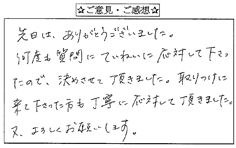 ☆ご意見・ご感想☆
先日は、ありがとうございました。
何度も質問にていねいに応対して下さっ
たので、決めさせて頂きました。取りつけに
来て下さった方も丁寧に応対して頂きました。
又、よろしくお願いします。